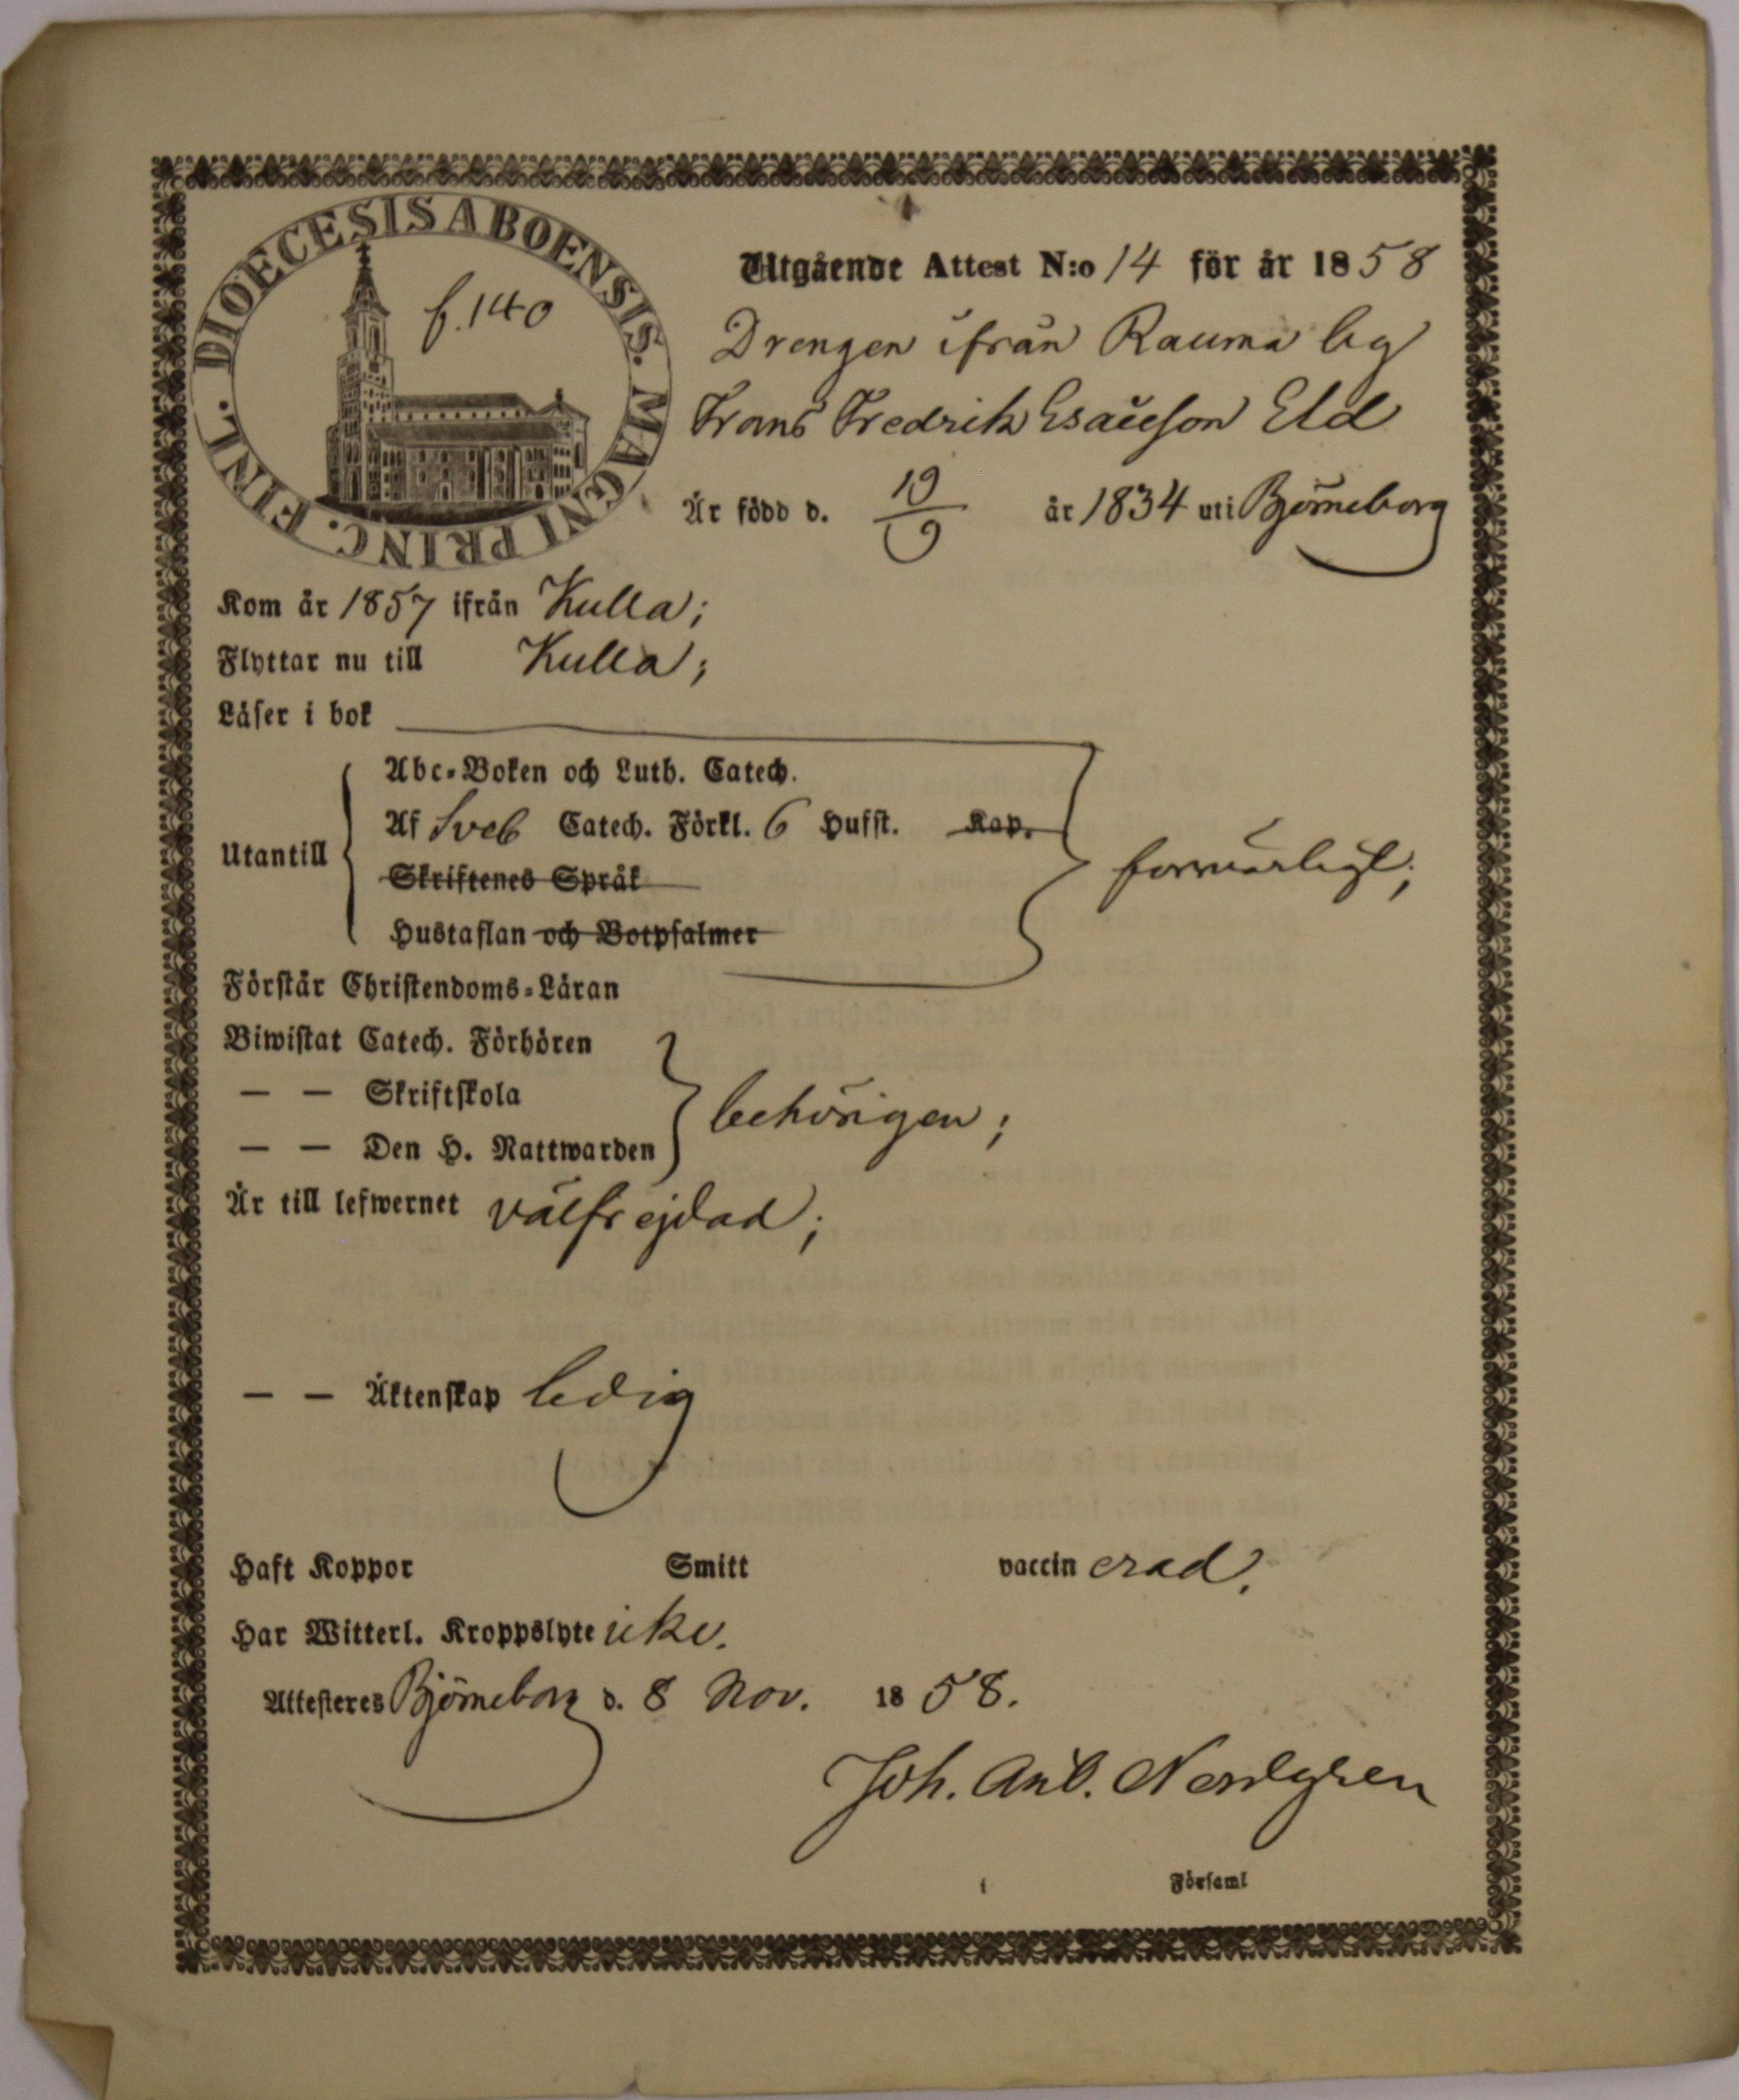 DIOECESIS ABOENSIS. MAGNI PRINC. FINL.
f. 140
Utgående Attest N:o 14 för år 1858
Drengen ifrån Rauma by
Frans Fredrik Esaieson Eld
Är född d. 19/9 år 1834 uti Björneborg
Kom år 1857 ifrån Kulla;
Flyttar nu till Kulla;
Läser i bok
Abc-Boken och Luth. Catech.
Af Sveb Catech. Förkl. 6 Hufst. Kap.
Utantill
Skriftenes Språk
försvarligt;
Hustaflan och Botpsalmer
Förstår Christendoms-Läran
Biwistat Catech. Förhören
— — Skriftskola
behörigen;
— — Den H. Nattwarden
Är till lefwernet välfrejdad;
— — Äktenskap ledig
Haft Koppor Smitt vaccinerad.
Har Witterl. Kroppslyte icke.
Attesteres Björneborg d. 8 Nov. 1858.
Joh. Nordgren
i Församl